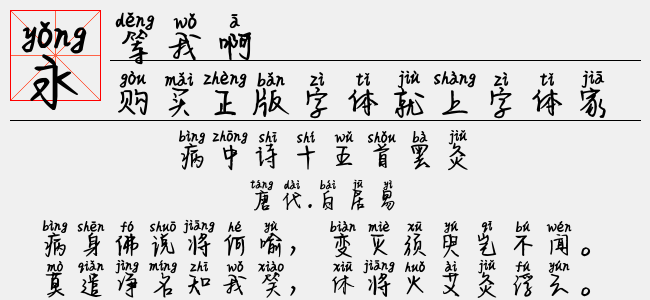 yǒng
永
děng wǒ ā
等我啊
gòu mǎi zhèng bǎn zì tǐ jiù shàng zì tǐ jiā
购买正版字体就上字体家
bìng zhōng shī shí wǔ shǒu bà jiǔ
病中诗十五首罢灸
táng dài bái jū yì
唐代.白居易
bìng shēn fó shuō jiāng hé yù biàn miè xū yú qǐ bú wén
病身佛说将何喻，变灭须臾岂不闻。
mò qiǎn jìng míng zhī wǒ xiào xiū jiāng huǒ ài jiǔ fú yún
莫遣净名知我笑，休将火艾灸浮云。